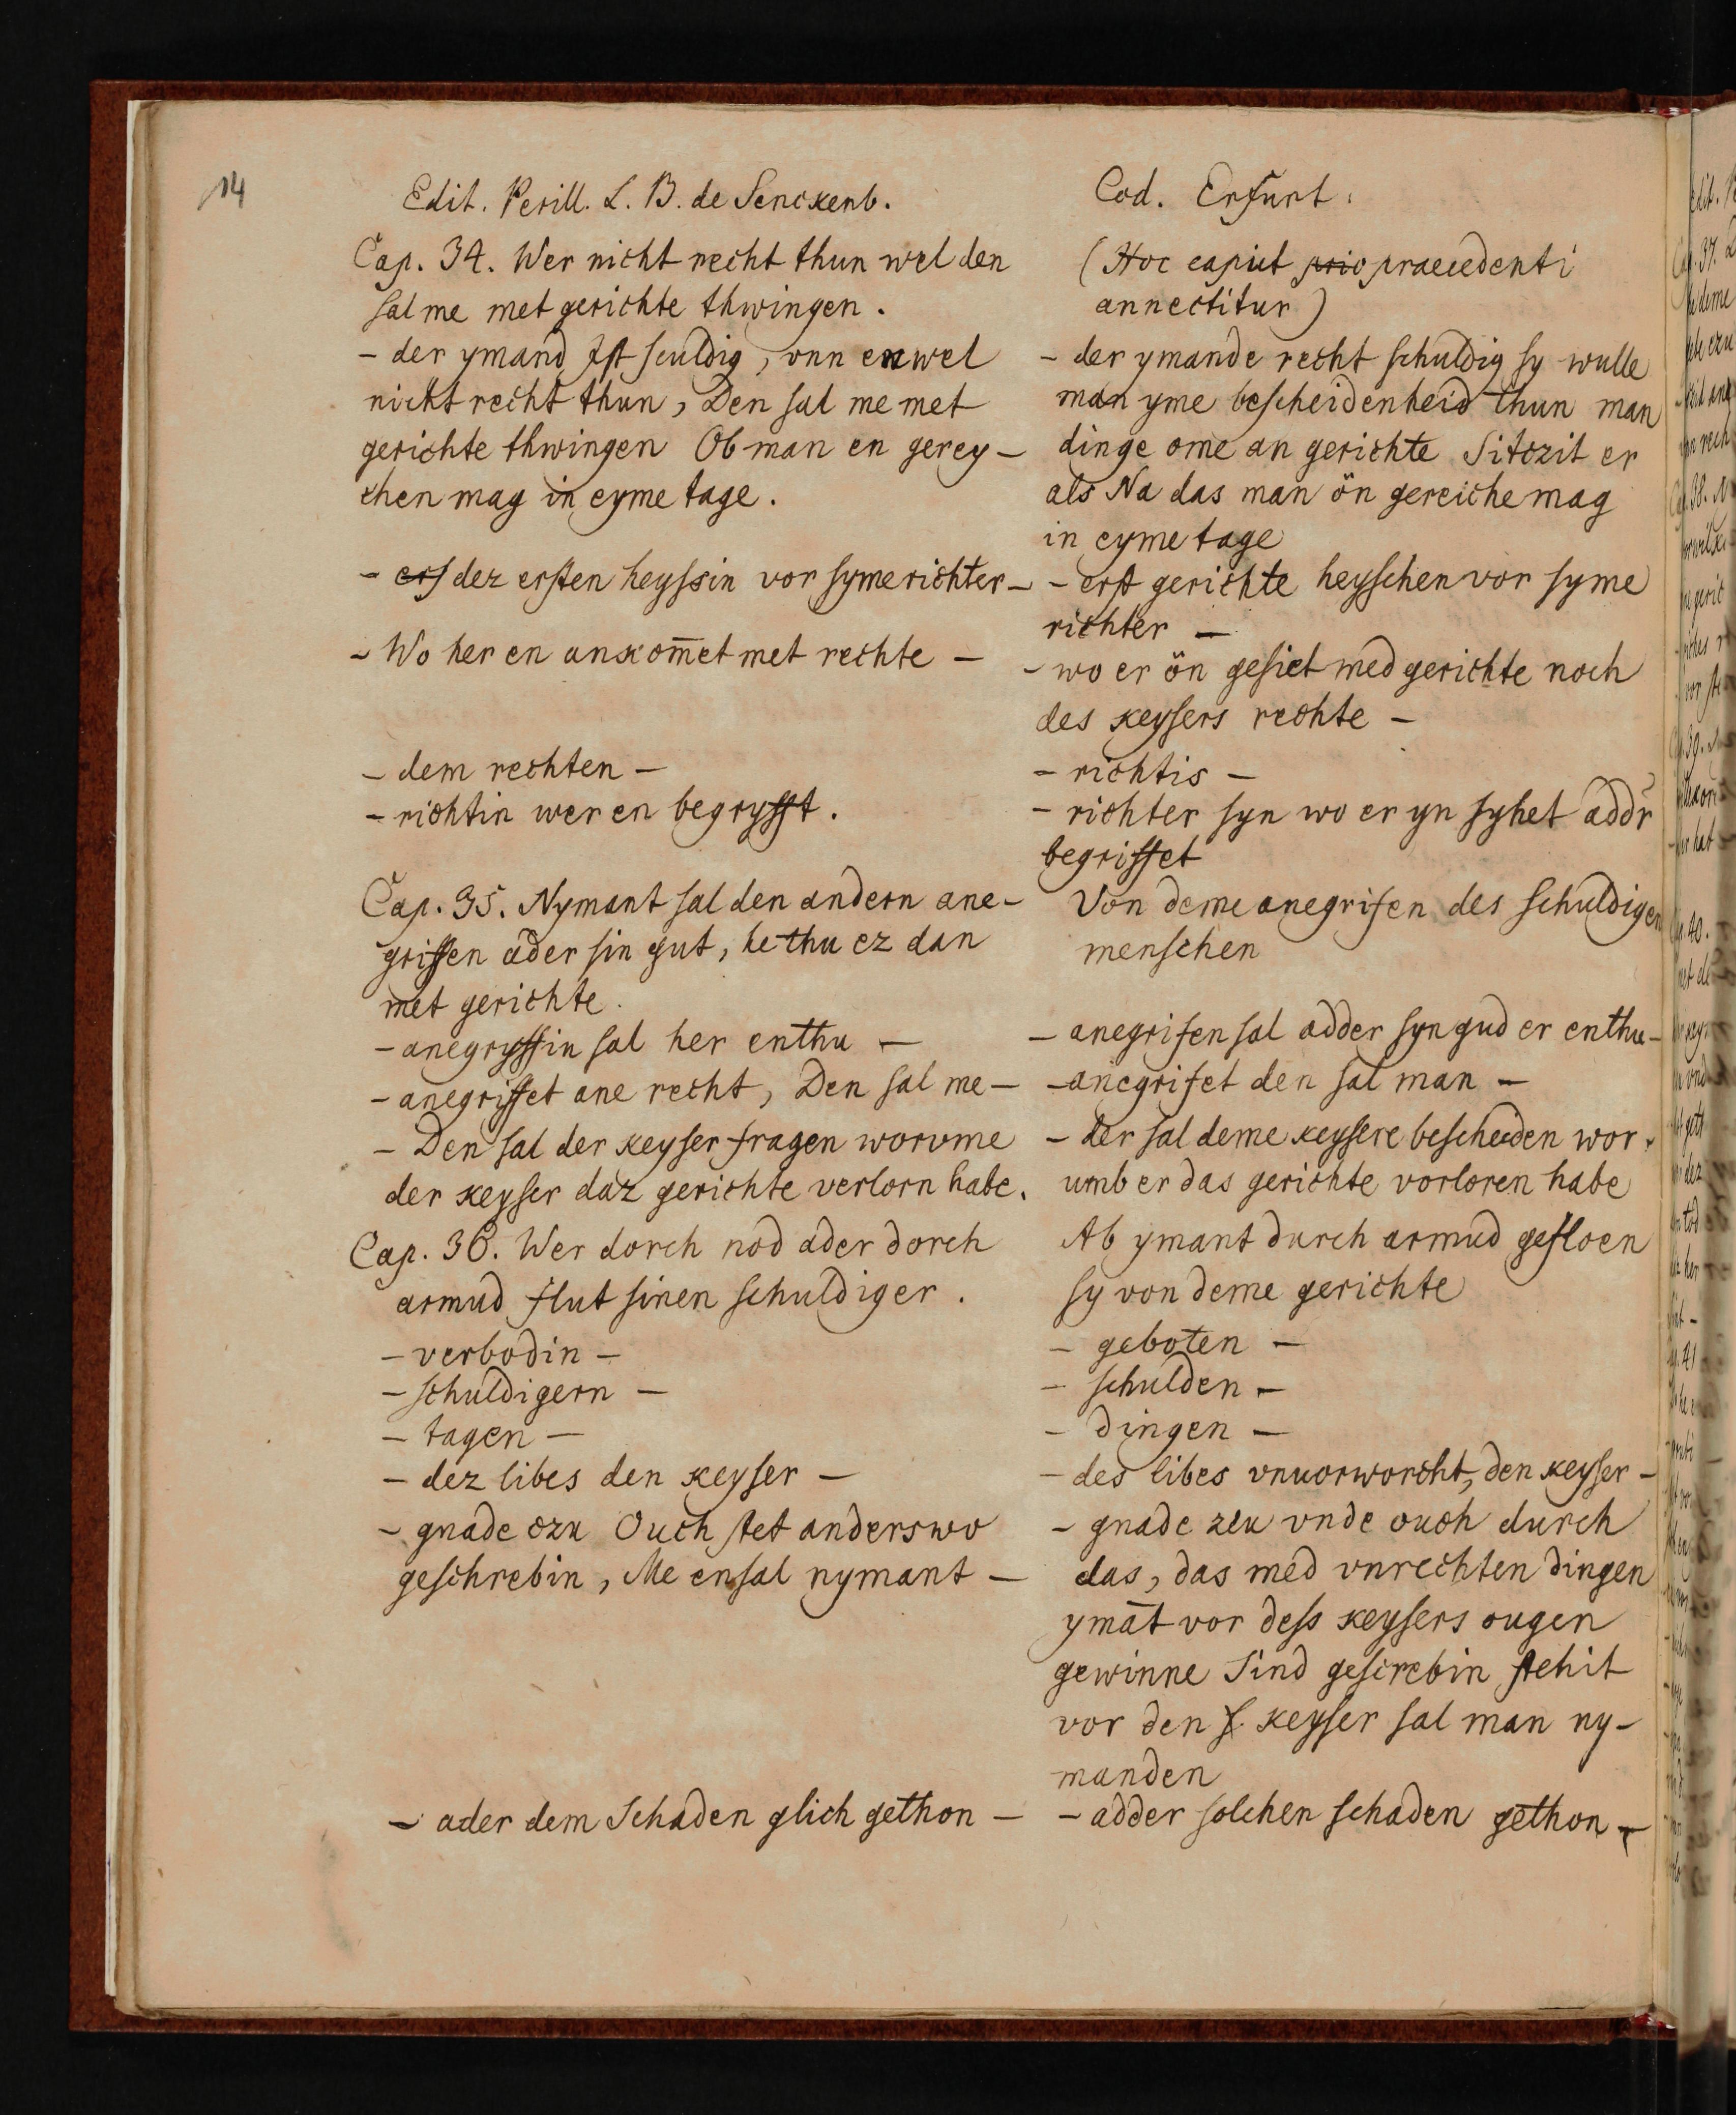 14
Edit. Perill. L. B. de Senckenb.
Cap. 34. Wer nicht recht thun wel den
sal me met gerichte thwingen.
- der ymand Ist sculdig, vnn enwel
nicht recht thun, Den sal me met
gerichte thwingen Ob man en gerey-
chen mag in eyme tage.
- ers dez ersten heyssin vor syme richter -
- Wo her en ankom̅et met rechte -
- dem rechten -
- richtin wer en begryfft.
Cap. 35. Nymant sal den andern ane-
griffen ader sin gut, he thu ez dan
met gerichte.
- anegryffin sal her enthu -
- anegriffet ane recht, Den sal me -
- Den sal der keyser fragen worvme
der keyser daz gerichte verlorn habe.
Cap. 36. Wer dorch nod ader dorch
armud flut sinen schuldiger.
- verbodin -
- schuldigern -
- tagen -
- dez libes den keyser -
- gnade czu Ouch stet anderswo
geschrebin, Me ensal nymant -
- ader dem Schaden glich gethon -
Cod. Erfurt.
(Hoc caput prio praecedenti
annectitur)
- der ymande recht schuldig sy wulle
man yme bescheidenheid thun man
dinge ome an gerichte Sitczit er
als Na das man ön gereiche mag
in eyme tage
- erst gerichte heyschen vor syme
richter -
- wo er ön gesiet med gerichte noch
des keysers rechte -
- richtis -
- richter syn wo er yn syhet addr
begriffet
Von deme anegrifen des schuldigen
menschen
- anegrifen sal adder syn gud er enthu -
- anegrifet den sal man -
- der sal deme keysere bescheeden wor
umb er das gerichte vorloren habe
Ab ymant durch armud gefloen
sy von deme gerichte
- geboten -
- schulden -
- dingen -
- des libes vnuorworcht, den keyser -
- gnade zcu vnde ouch durch
das, das med vnrechten dingen
ymāt vor dess keysers ougen
gewinne Sind gescrebin stehit
vor den s. keyser sal man ny-
manden
- adder solchen schaden gethon -